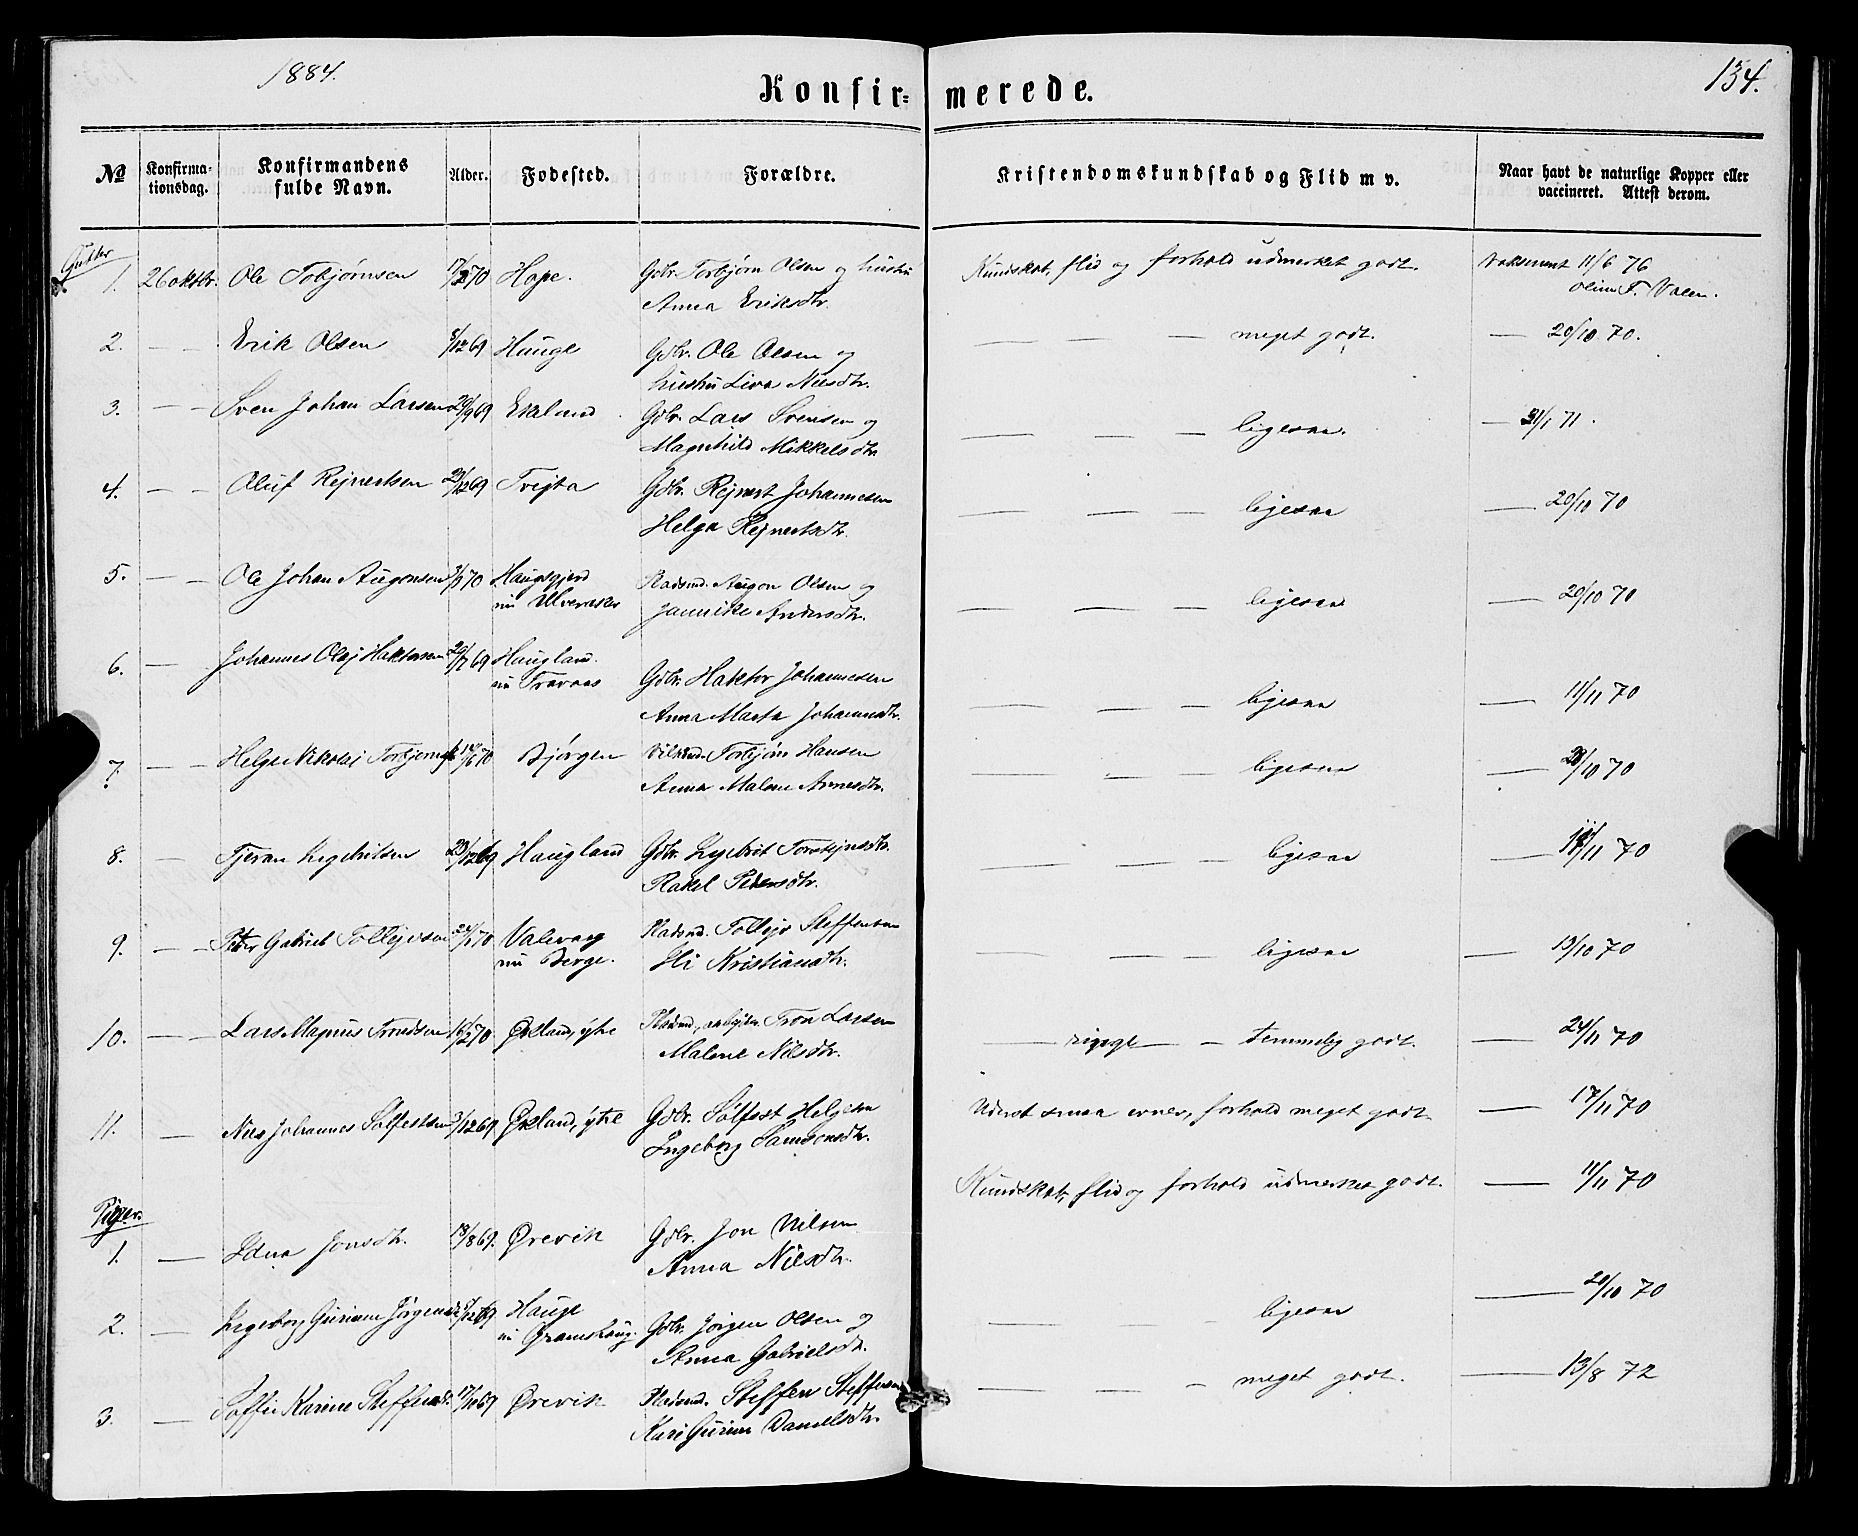 1884.
134.
Konfir= merede.
No
Konfirma-
tionsdag.
Konfirmandens
fulde Navn.
Alder.
Fødested.
Forældre.
Kristendomskundskab og Flid m v.
Naar havt de naturlige Kopper eller
vaccineret. Attest derom.
Gutter
1. 26 oktbr. Ole Tobjørnsen 70 Hope. Gbr. Torbjørn Olsen og hustru
Anna Eriksdtr.
Kundskab, flid og forhold udmerket godt. 11/6 76
Valen.
2. — — Erik Olsen 12 69 Hauge Gbr. Ole Olsen og
hustru Nilsdtr.
— — — meget godt. — 20/10 70.
3. — — Sven Johan Larsen 69 Gbr. Lars Svensen og
Magnhild Mikkelsdtr.
— — — ligesaa. — 71.
4. — — Oluf Rejnertsen 69 Tvejta Gbr. Rejnert Johannesen
Helga Rejnertsdtr.
— — — ligesaa — 20/10 70
5. — — Ole Johan Augonsen 70 Haugsgjerd
nu Ulveraker
Pladsmd. Augon Olsen og
Jannike Andersdtr.
— — — ligesaa — 20/10 70
6. — Johannes Olaj Haktorsen 69 Haugland.
nu
Gbr. Haktor Johannesen
Anna Marta Johannesdtr.
— — — ligesaa — 11/11 70
7. — — Helge Nikolai 70 Bjørgen Torbjørn Hansen
Anna Malene Arnesdtr.
— — — ligesaa — /10 70
8. — Tjeran Ingebritsen 69 Haugland Gbr. Ingebrit
Rakel Pedersdtr.
— — — ligesaa — /11 70
9. — — Peter Gabriel Tollejvsen 70 Valevaag
nu Berge.
Pladsmd. Tollejv Steffensen
Kristiansdtr.
— — — ligesaa — 13/10 70
10. — — Lars Magnus Trondsen 16/2 70 Økland, ytre Pladsmd. Tron Larsen
Malene Nilsdtr.
— — — temmelig godt. — 24/11 70
11. — Nils Johannes Sølfestsen 3/12 69. Økland, ytre Gbr. Sølfest Helgesen
Ingeborg Samsonsdtr.
Yderst smaa evner, forhold meget godt. — 17/11 70
Piger.
1. — Jonsdtr. 8 69. Ørevik Gbr. Jon Nilsen
Anna Nilsdtr.
Kundskab, flid og forhold udmerket godt. — 11/11 70
2. — Ingeborg Gurine 69 Hauge
nu Gramshaug.
Gbr. Jørgen Olsen og
Anna Gabrielsdtr.
— — — ligesaa — 20/10 70
3. — Karine 69 Ørevik Pladsmd. Steffen Steffensen
Kari Gurine Danielsdtr.
— — — meget godt. — 13/8 72